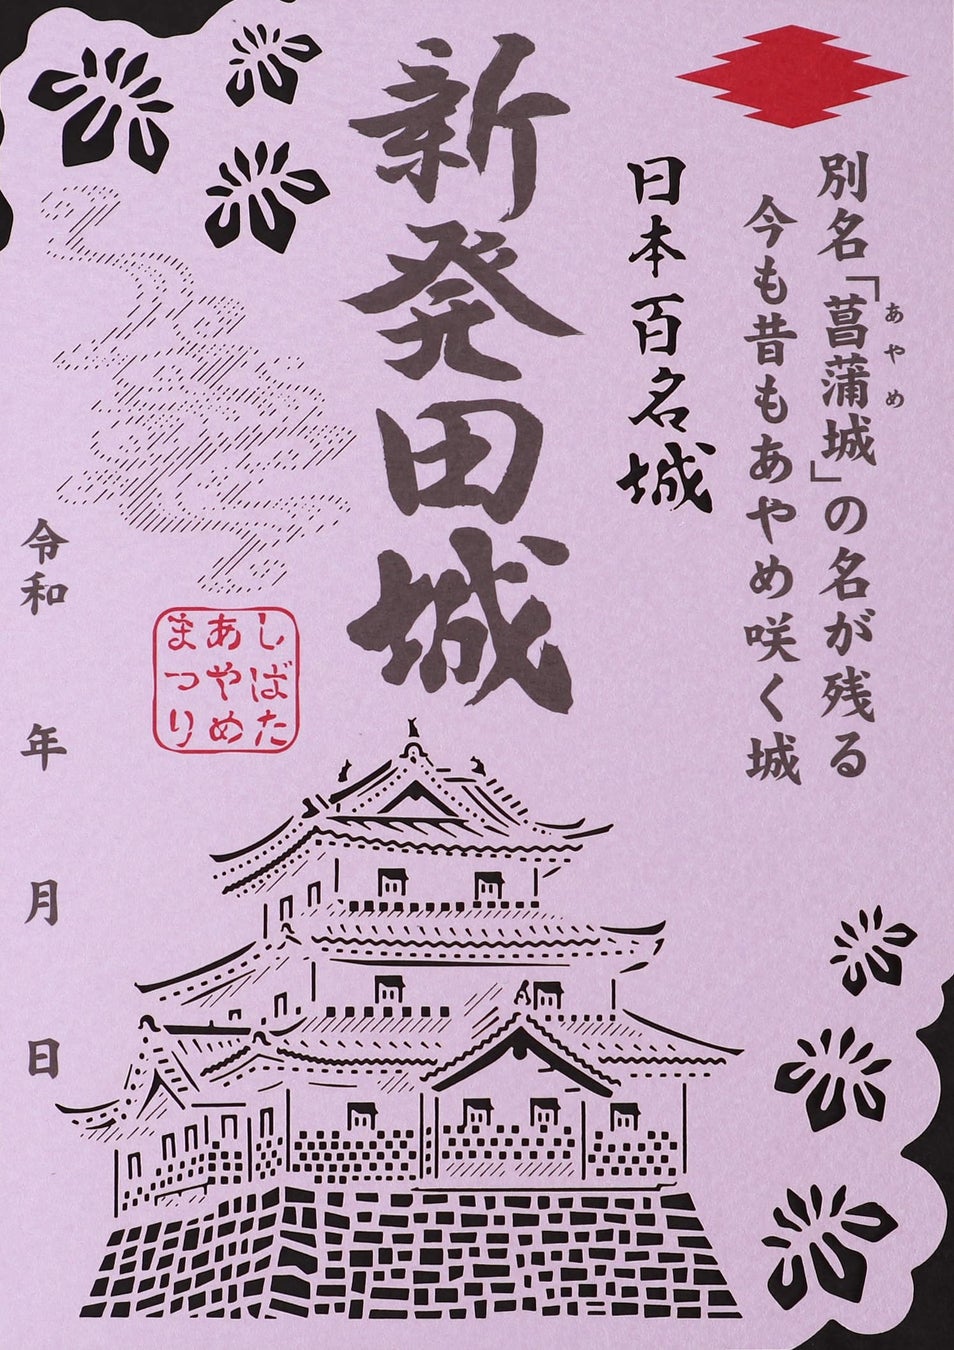 別名「菖蒲城」の名が残る
あやめ
今も昔もあやめ咲く城
日本百名城
新発田城
しばた
あやめ
まつり
令和 年 月 日